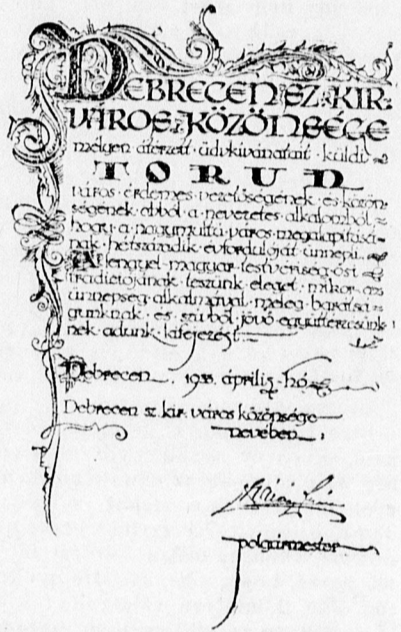 DEBRECEN SZ·KIR·
VÁROS·KÖZÖNSÉGE
mélyen·átérzett·üdvkívánatait·küldi
TORUN
város·érdemes·vezetőségének·és·közön-
ségének·abból·a·nevezetes·alkalomból·
hogy·a·nagymultú·város·megalapításá-
nak·hétszázadik·évfordulóját·ünnepli·
A·lengyel-magyar·testvériség·ősi
tradiciójának·teszünk·eleget·mikor·az
ünnepség·alkalmával·meleg·barátsá-
gunknak·és·szívből·jövő·együttérzésünk-
nek·adunk·kifejezést·
Debrecen, 1933. április·hó
Debrecen sz. kir. város közönsége
nevében,
polgármester